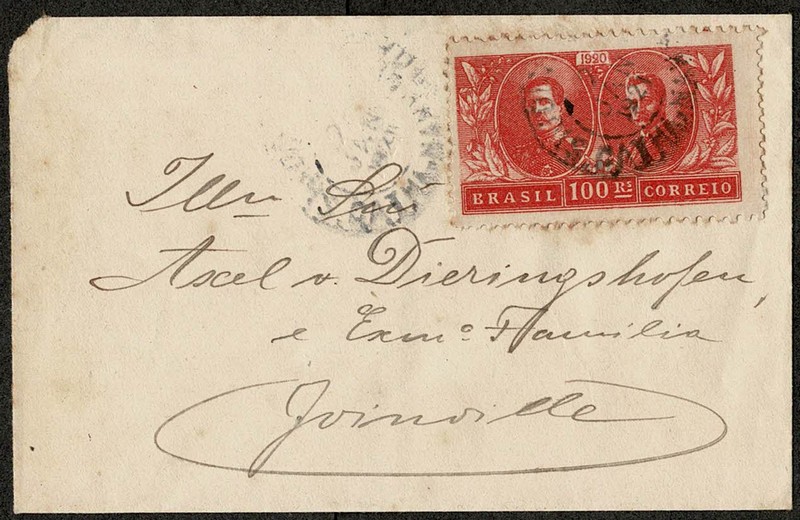 1920
BRASIL 100 RS CORREIO
Illm Snr
Axel v. Dieringshofen,
e Exmª Familia
Joinville